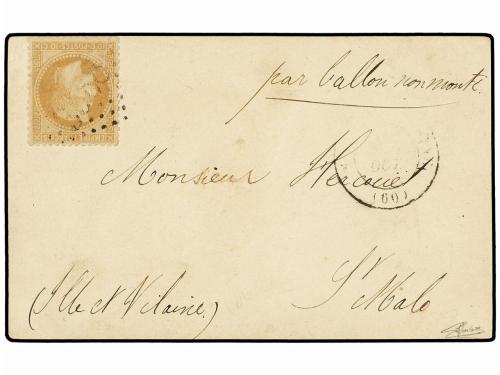 par ballon non monté.
Monsieur Hercouet
OCT
(60)
St Malo
(Ille et Vilaine)